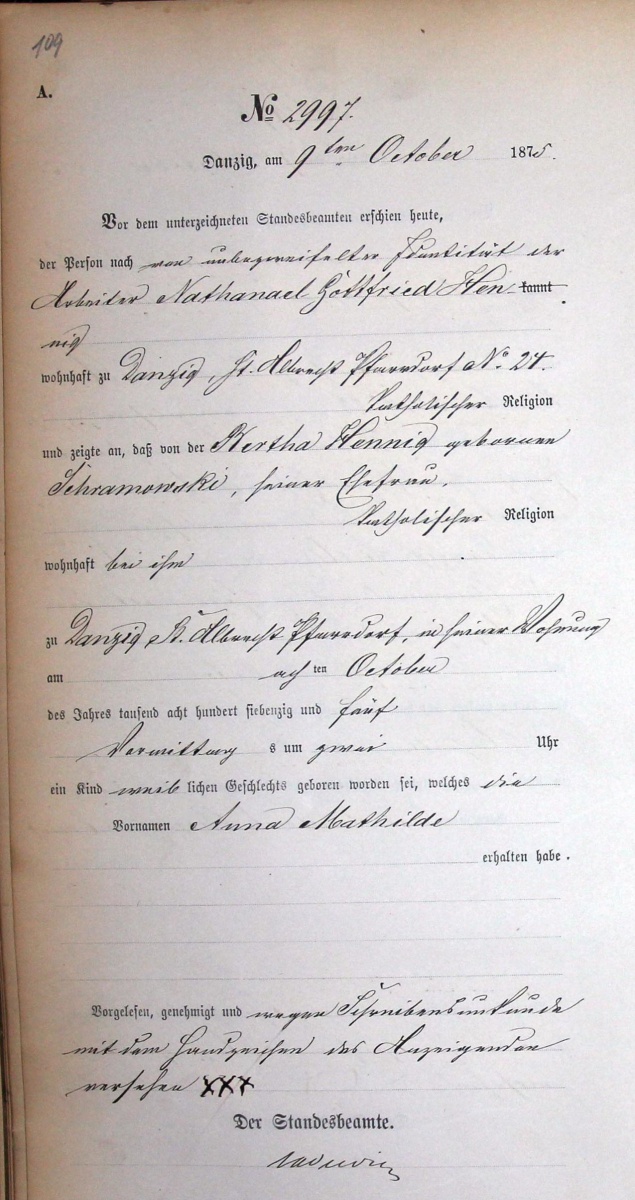 109
A.
No 2997.
Danzig, am 9ten October 1875.
Vor dem unterzeichneten Standesbeamten erschien heute,
der Person nach von unbezweifelter Identität der
Arbeiter Nathanael Gottfried Hen kannt
nig
wohnhaft zu Danzig, St. Albrecht Pfarrdorf No 24.
katholischer Religion
und zeigte an, daß von der Bertha Hennig geborenen
Schramowski, seiner Ehefrau.
katholischer Religion
wohnhaft bei ihm
zu Danzig St. Albrecht Pfarrdorf, in seiner Wohnung
am achten October
des Jahres tausend acht hundert siebenzig und fünf
Vormittag s um zwei Uhr
ein Kind weib lichen Geschlechts geboren worden sei, welches die
Vornamen Anna Mathilde
erhalten habe.
Vorgelesen, genehmigt und wegen Schreibensunkunde
mit dem Handzeichen des Anzeigenden
versehen XXX
Der Standesbeamte.